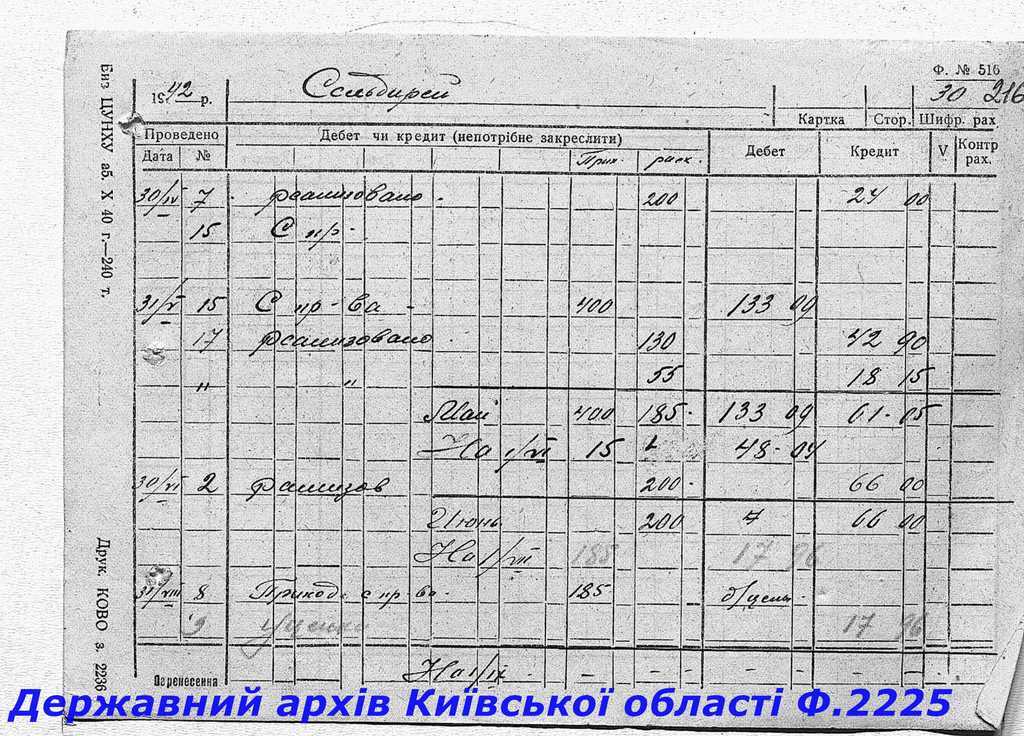 Ф. № 516
1942 р. Сельдирей 30 216
Картка Стор. Шифр. рах
Проведено Дебет чи кредит (непотрібне закреслити) Дебет Кредит V Контр рах.
Дата № Прих. расх.
30/IV 7 реализовано 200 24 00
15 С пр-
31/V 15 С пр-ва 400 133 09
17 реализовано 130 42 90
" " 55 18 15
Май 400 185 133 09 61 05
На 1/VI 15 48 04
30/VI 2 200 66 00
Июнь 200 66 00
На 1/VII 185 17 96
31/VIII 8 Приход с пр-ва 185 б/цены
9 17 96
Перенесення На 1/IX - - - -
Биз ЦУНХУ аб. X 40 г.—240 т.
Друк. КОВО з. 2236
Державний архів Київської області Ф.2225